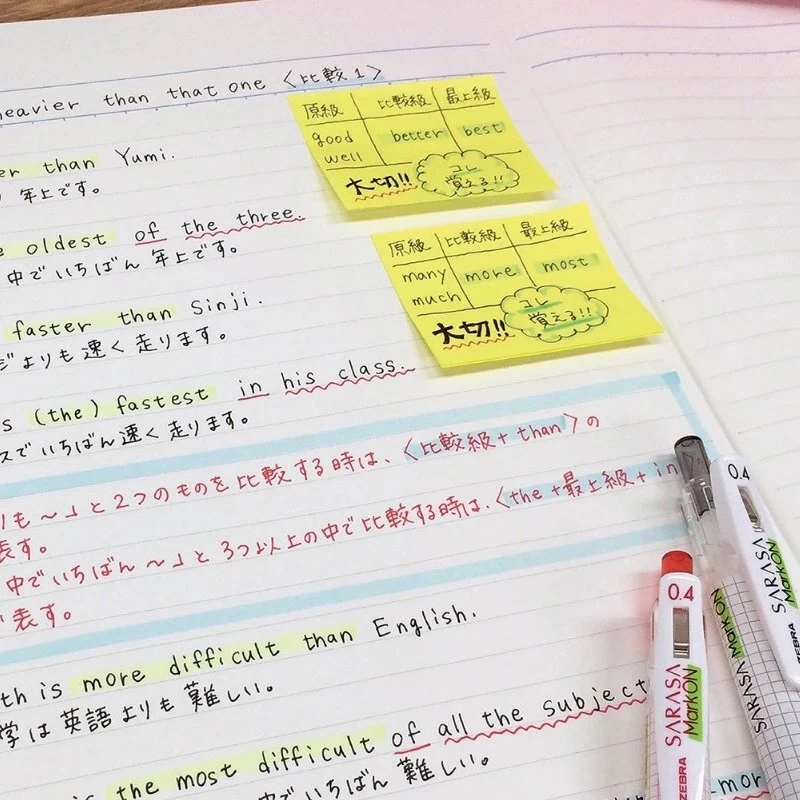 heavier than that one 〈比較1〉
than Yumi.
年上です。
oldest of the three.
中でいちばん年上です。
faster than Sinji.
よりも速く走ります。
(the) fastest in his class.
スでいちばん速く走ります。
りも〜」と2つのものを比較する時は、〈比較級+than〉の
表す。
中でいちばん〜」と3つ以上の中で比較する時は、〈the+最上級+in
表す。
is more difficult than English.
学は英語よりも難しい。
the most difficult of all the subject
中でいちばん難しい。
原級 比較級 最上級
good better best
well
大切!! コレ
覚える!!
原級 比較級 最上級
many more most
much
大切!! コレ
覚える!!
0.4
SARASA
MarkON
ZEBRA
0.4
SARASA
MarkON
ZEBRA
SARASA MarkON